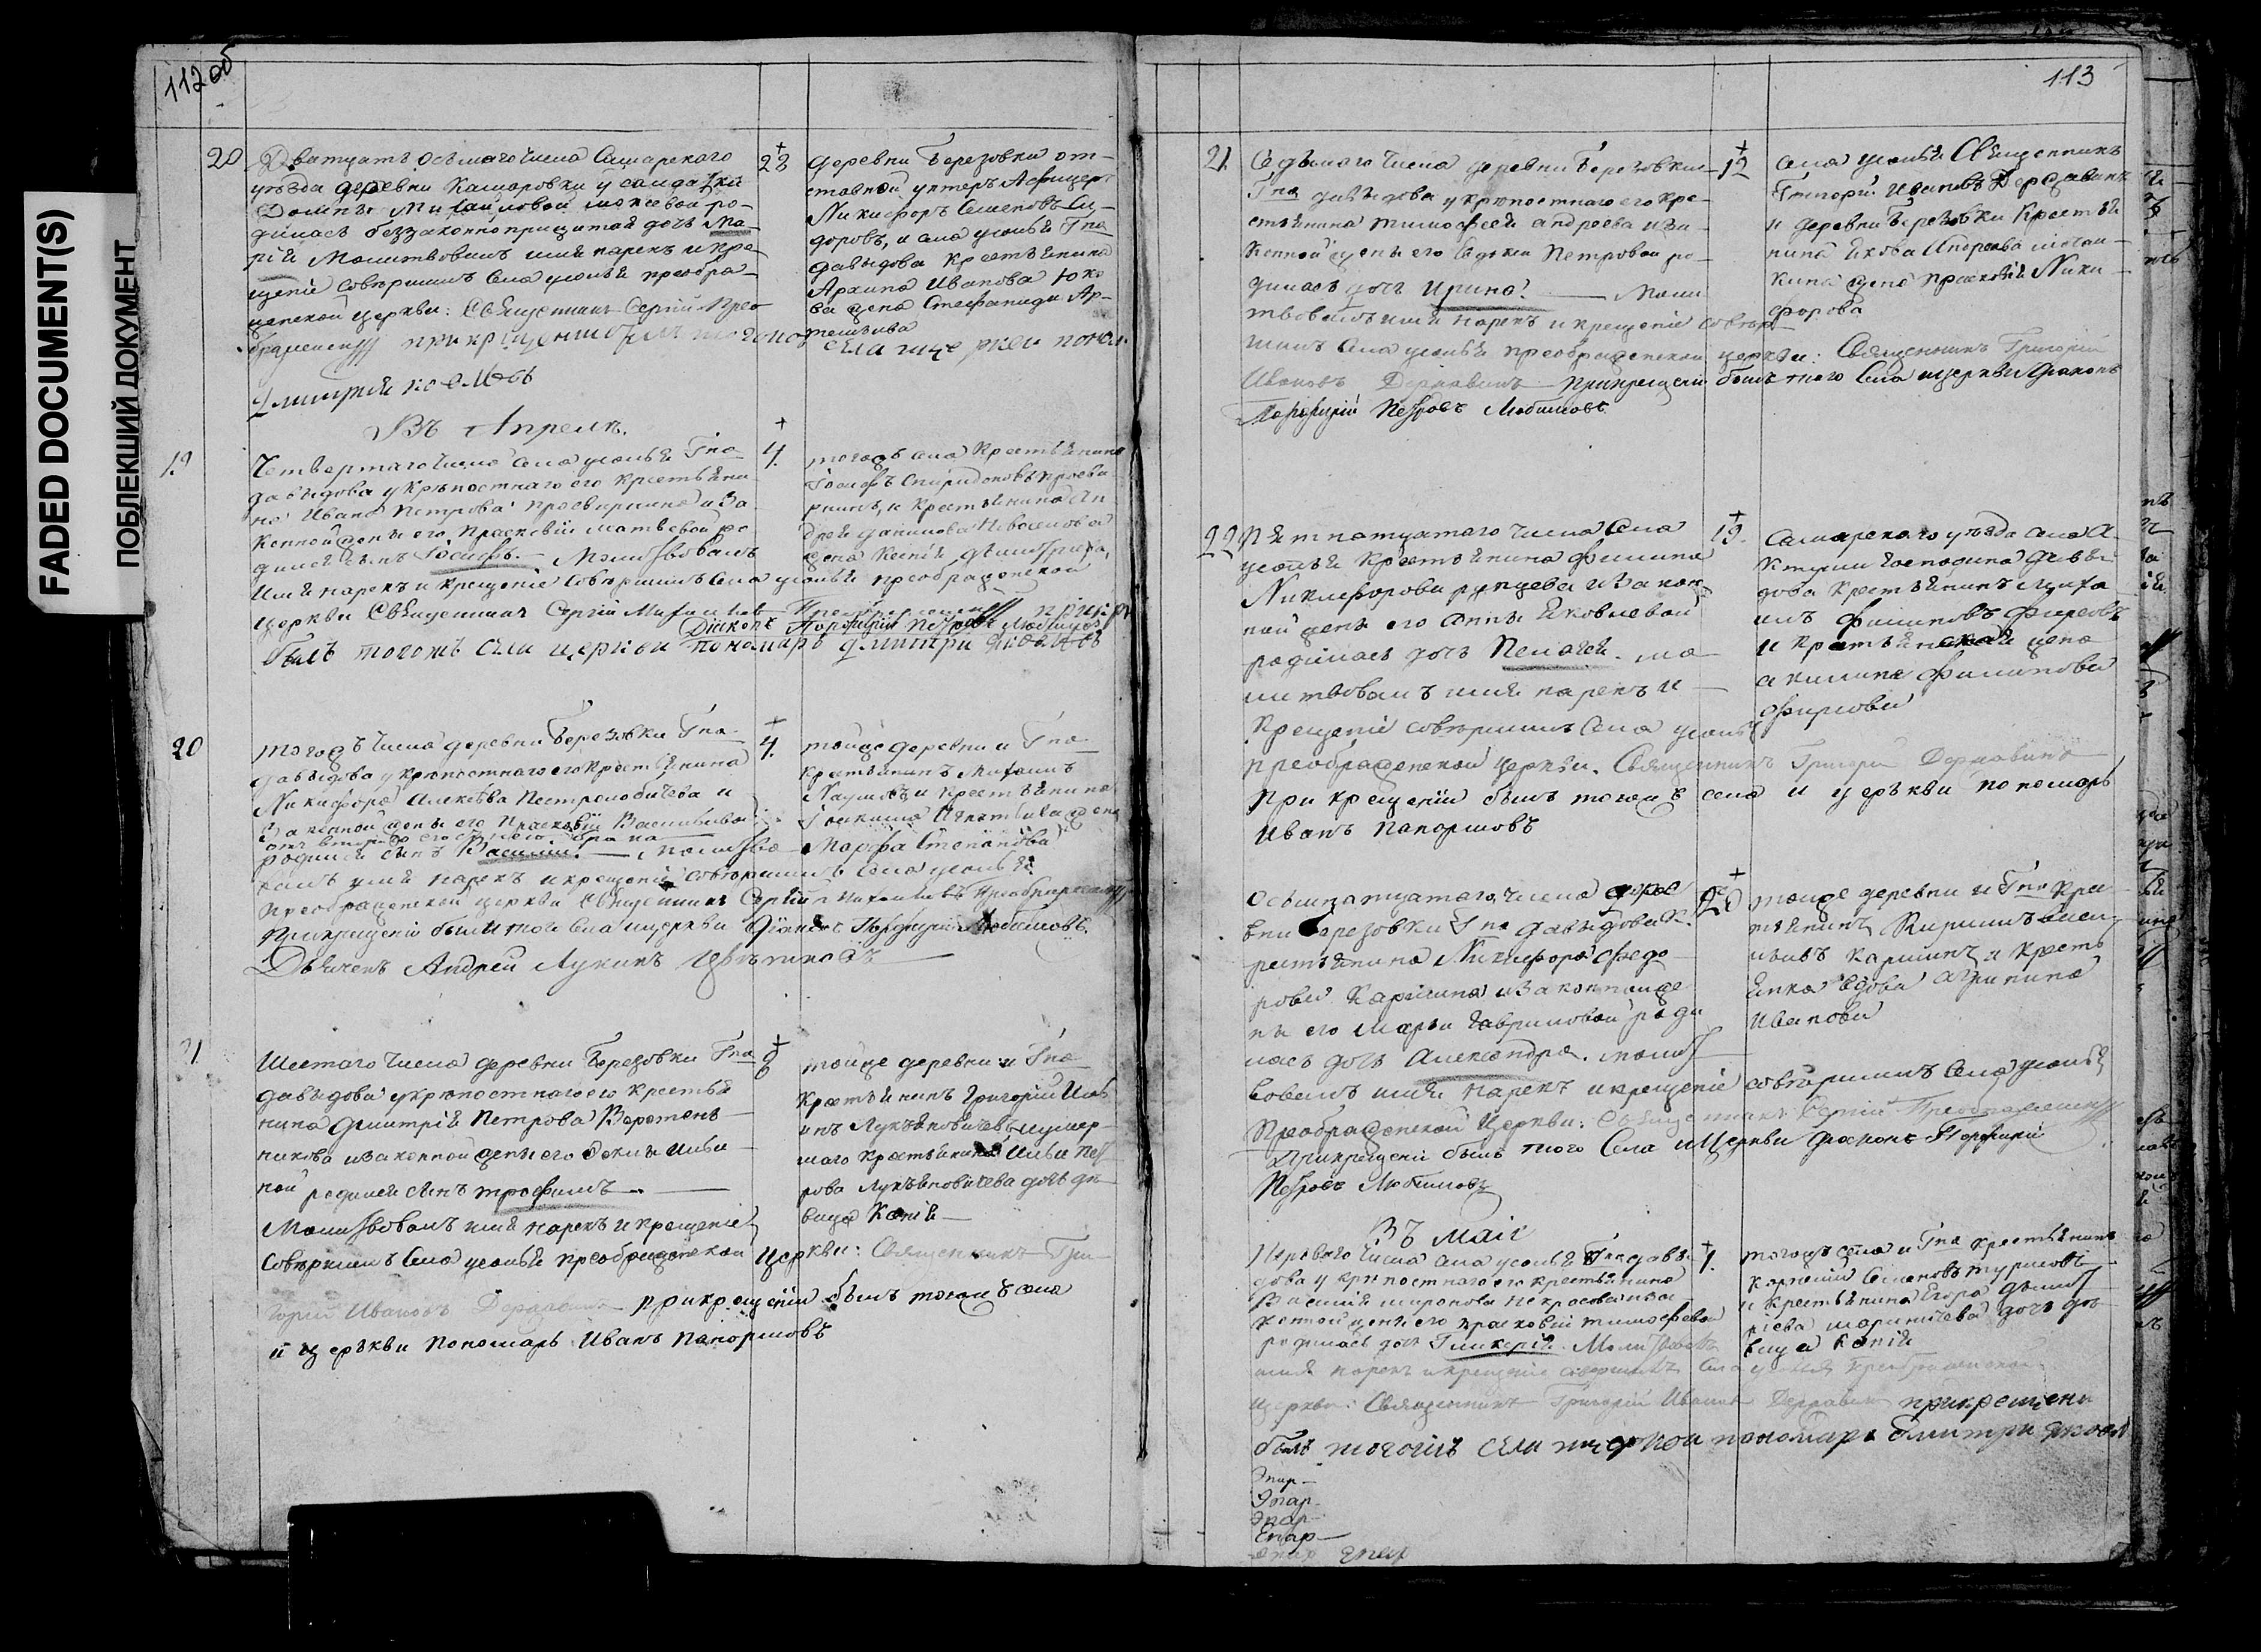 FADED DOCUMENT(S)
ПОБЛЕКШИЙ ДОКУМЕНТ
112об
20
Дватцать осьмаго числа Самарскаго
уезда деревни Кашаровки у салдатки
Домны Михайловой
дилась беззаконноприжитая дочь Ма-
рія Молитвовалъ имя нарекъ и кре-
щеніе совершилъ села усолья преобра-
женской церкви: Священникъ Сергій Прео
браженскій при крещеніи былъ тогожъ
28
деревни Березовки от-
ставной унтеръ Афицеръ
Никифоръ Семеновъ Си-
доровъ, и села усолья Гна
давыдова крестьянина
Архипа Иванова
ва жена Стефанида Ар-
темьива
села и церкви поном
Дмитрей
Въ Апреле.
19
Четвертаго числа села усолья Гна
давыдова у крѣпостнаго его крестьяни
на Ивана Петрова просвирнина и за
конной жены его Прасковіи матвѣевой ро
дился сынъ Іосифъ. Молитвовалъ
имя нарекъ и крещеніе совершилъ села усолья преображенской
церкви Священникъ Сергій Михайловъ Преображенскій при кр
Діаконъ Порфирій Петровъ Любимовъ
былъ тогожъ села церкви пономарь дмитри
4.
тогожъ села крестьянинъ
Іосифъ Спиридоновъ просви
рнинъ, и крестьянина Ан
дрея данилова
жена Ксенія дмитріева,
20
тогожъ числа деревни Березовки Гна
давыдова у крѣпостнаго его крестьянина
Никифора Алексѣва Пестрелобичева и
законной жены его Прасковіи Васильивой
отъ втораго его брака
родился сынъ Василій. молитво
валъ имя нарекъ и крещеніе совершилъ села усолья
преображенской церкви Священникъ Сергій Михайловъ Преображенскій
При крещеніи были того села и церкви Діаконъ Порфирій Любимовъ.
Дьячекъ Андрей Лукинъ
4.
тойже деревни и Гна
крестьянинъ Михаилъ
Наумовъ и крестьянина
Іоакима Игнатьива жена
Марфа Степанова
21
Шестаго числа деревни Березовки Гна
давыдова у крѣпостнаго его крестья
нина Дмитрія Петрова Веретен-
никова и законной жены его Ильи
ной родился сынъ трофимъ
Молитвовалъ имя нарекъ и крещеніе
совершилъ села усолья преображенской церкви: Священникъ Гри
горій Ивановъ Державинъ при крещеніи былъ тогожъ села
и церькви Пономарь Иванъ Папоршовъ
6
тойже деревни и Гна
Крестьянинъ Григорій Иль
инъ Лукъяновичевъ и умер-
шаго крестьянина Ильи Пет
рова Лукъяновичева дочь дѣ
вица Ксенія
113
21
Седьмаго числа деревни Березовки
Гна давыдова у крѣпостнаго его кре-
стьянина тимофея андреева и за-
конной жены его Евдокіи Петровой ро-
дилась дочь Ирина. Моли
твовалъ имя нарекъ и крещеніе совер-
шилъ села усолья преображенской церкви: Священникъ Григорій
Ивановъ Державинъ При крещеніи былъ того села и церкви Діаконъ
Порфирій Петровъ Любимовъ
12
села усолья Священникъ
Григорій Ивановъ Державинъ
и деревни Березовки крестья
нина Якова Андреева
кина жена прасковія Ники-
форова
22
Пятнатцатаго числа села
усолья крестьянина филипа
Никифорова рунцева и закон-
ной жены его Анны Яковлевой
родилась дочь Пелагея. мо-
литвовалъ имя нарекъ и
крещеніе совершилъ села усолья
преображенской церкви. Священникъ Григорій Державинъ
при крещеніи былъ тогожъ села и церькви пономарь
Иванъ Папоршовъ
19.
Самарскаго уезда села А-
ктуши господина давы
дова крестьянинъ Михаи
илъ филиповъ фирсовъ
и крестьянская жена
акилина филипова
фирсова
Осьмнатцатаго числа дере
вни Березовки Гна давыдова к
рестьянина Никифора федо
рова Каршина и законной же
ны его Марьи Гавриловой роди
лась дочь Александра. молит
вовалъ имя нарекъ и крещеніе совершилъ села усолья
Преображенской Церкви: Священникъ Сергій Преображенскій
При крещеніи былъ того Села и Церкви діаконъ Порфирій
Петровъ Любимовъ
20
тойже деревни и Гна кре
стьянинъ Кирилъ
Каршинъ и кресть
янка вдова агрипина
Иванова
Въ маіи
Перваго числа села усолья Гна давы
дова у крѣпостнаго его крестьянина
Василія миронова Некрасова и за
конной жены его прасковіи тимофеевой
родилась дочь Гликерія. Молитвовалъ
имя нарекъ и крещеніе совершилъ села усолья Преображенской
церкви: Священникъ Григорій Ивановъ Державинъ при крещени
былъ тогожъ села и церкви пономарь дмитри
1.
тогожъ села и Гна крестьянинъ
Семеновъ
и крестьянина Егора дмит
ріева дочь дѣ
вица Ксенія
Епар
Епар
Епар
Епар
Епар Епар